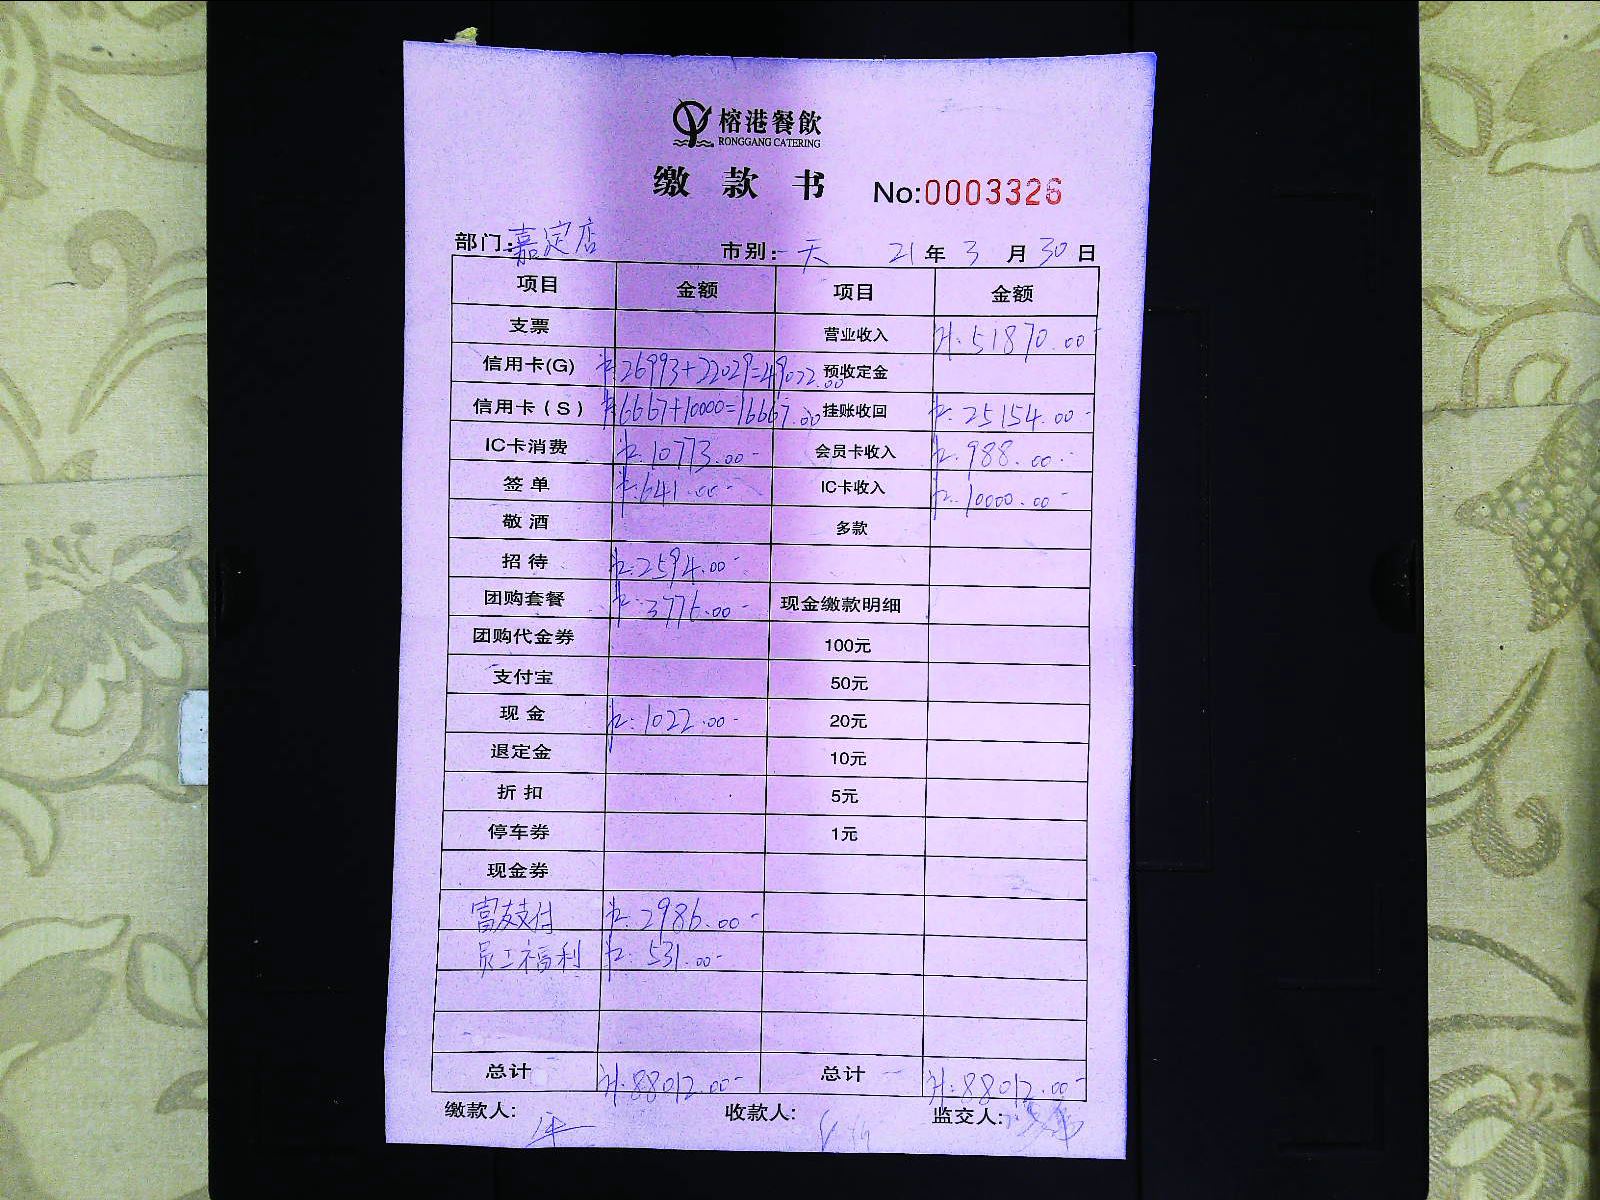 榕港餐飲
RONGGANG CATERING
缴款书 No:0003326
部门:嘉定店 市别:一天 21年3月30日
项目 金额 项目 金额
支票 营业收入 计:51870.00-
信用卡(G) 26993+22029=49022.00 预收定金
信用卡(S) 6667+10000=16667.00 挂账收回 25154.00-
IC卡消费 10773.00- 会员卡收入 988.00-
签单 641.00- IC卡收入 10000.00-
敬酒 多款
招待 2594.00-
团购套餐 3776.00- 现金缴款明细
团购代金券 100元
支付宝 50元
现金 1022.00- 20元
退定金 10元
折扣 5元
停车券 1元
现金券
富友支付 2986.00-
员工福利 531.00-
总计 计:88012.00- 总计 计:88012.00-
缴款人: 收款人: 监交人: